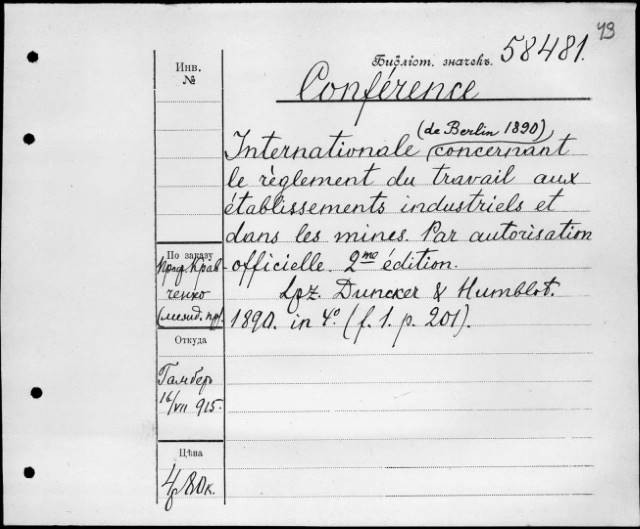 43
Библіот. значекъ. 58481.
Conférence
(de Berlin 1890)
Internationale concernant
le règlement du travail aux
établissements industriels et
dans les mines. Par autorisation
officielle. 2me édition.
Lpz. Duncker & Humblot.
1890. in 4º (f. 1. p. 201).
Инв.
№
По заказу
проф. Крав
ченко
Откуда
Гамбер
16/VII 915.
Цѣна
4р 80к.